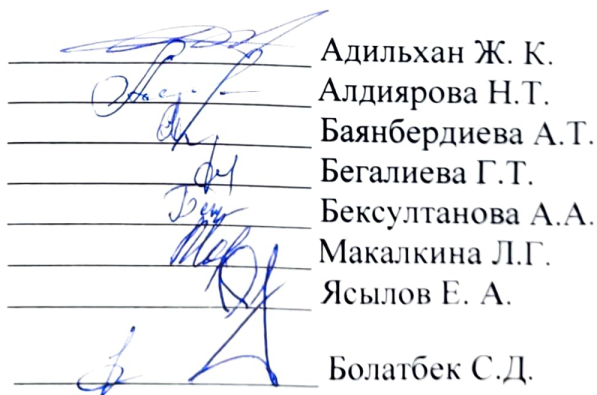 Адильхан Ж. К.
Алдиярова Н.Т.
Баянбердиева А.Т.
Бегалиева Г.Т.
Бексултанова А.А.
Макалкина Л.Г.
Ясылов Е. А.
Болатбек С.Д.